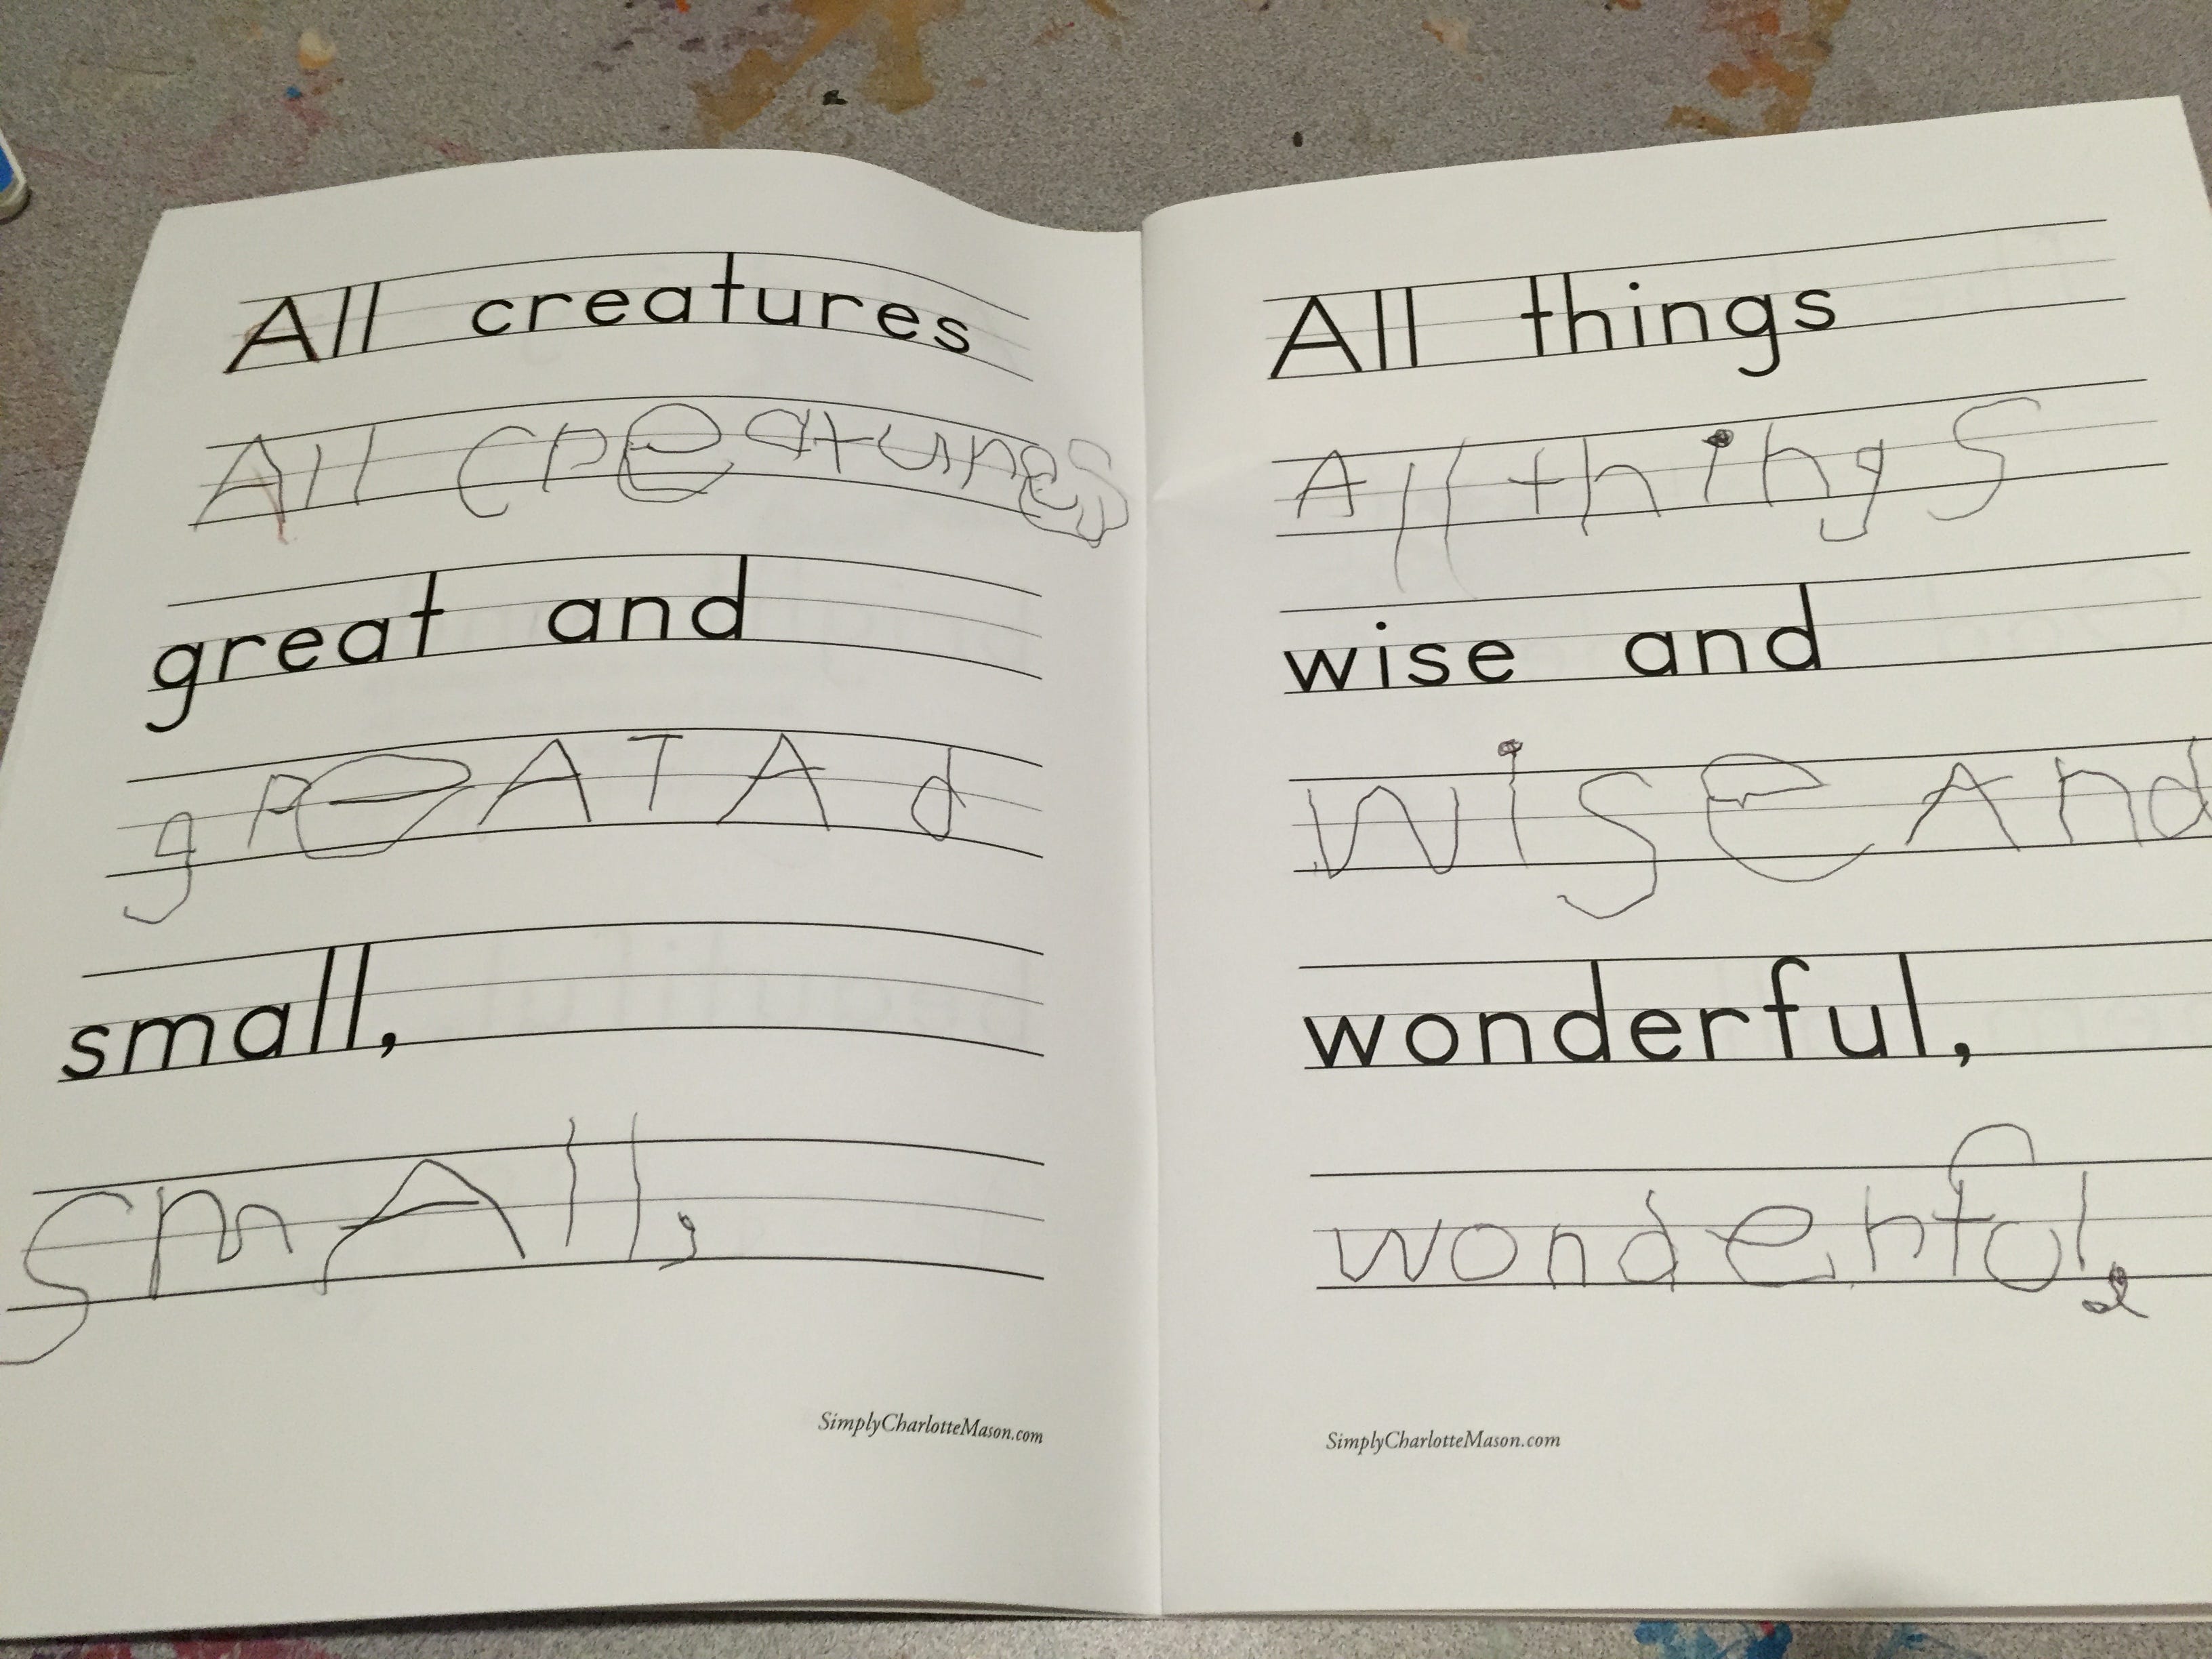 All creatures
All creatures
great and
greATAd
small,
smAll,
SimplyCharlotteMason.com
All things
All things
wise and
wise And
wonderful,
wonderful,
SimplyCharlotteMason.com